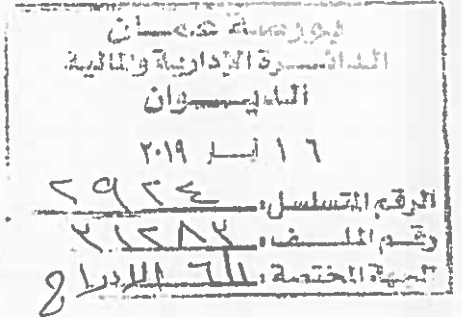 بورصة عمان
الدائرة الإدارية والمالية
الديوان
١٦ أيار ٢٠١٩
الرقم المتسلسل: ٢٩٢٤
رقم الملف: ٢١٢٨٢
الجهة المختصة: